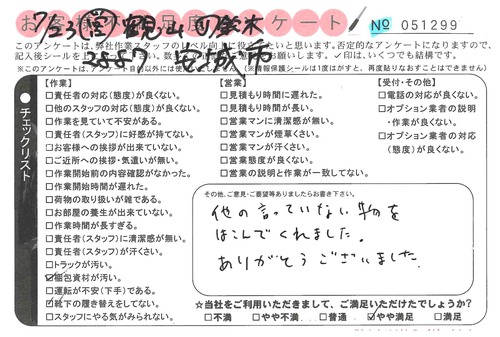 7/23
№ 051299
このアンケートは、弊社作業スタッフのレベル向上に役立てたいと思います。否定的なアンケートになりますので、
※このアンケートは、アンケート目的以外には使用いたしません。(情報保護シールは1度はがすと、再度貼りなおすことはできません)
チェックリスト
【作業】
□責任者の対応(態度)が良くない。
□他のスタッフの対応(態度)が良くない。
□作業を見ていて不安がある。
□責任者(スタッフ)に好感が持てない。
□お客様への挨拶が出来ていない。
□ご近所への挨拶・気遣いが無い。
□作業開始前の内容確認がなかった。
□作業開始時間が遅れた。
□荷物の取り扱いが雑である。
□お部屋の養生が出来ていない。
□作業時間が長すぎる。
□責任者(スタッフ)に清潔感が無い。
□責任者(スタッフ)が汗くさい。
□トラックが汚い。
☑梱包資材が汚い。
□運転が不安(下手)である。
□靴下の履き替えをしてない。
□スタッフにやる気がみられない。
【営業】
□見積もり時間に遅れた。
□見積もり時間が長い。
□営業マンに清潔感が無い。
□営業マンが煙草くさい。
□営業マンが汗くさい。
□営業態度が良くない。
□営業の説明と作業が一致してない。
【受付・その他】
□電話の対応が良くない。
□オプション業者の説明
・作業が良くない。
□オプション業者の対応
(態度)が良くない。
その他、ご意見・ご要望等ありましたらお書き下さい。
他の言っていない物を
はこんでくれました。
ありがとうございました。
★当社をご利用いただきまして、ご満足いただけたでしょうか?
□不満 □やや不満… □普通 ☑やや満足 □満足